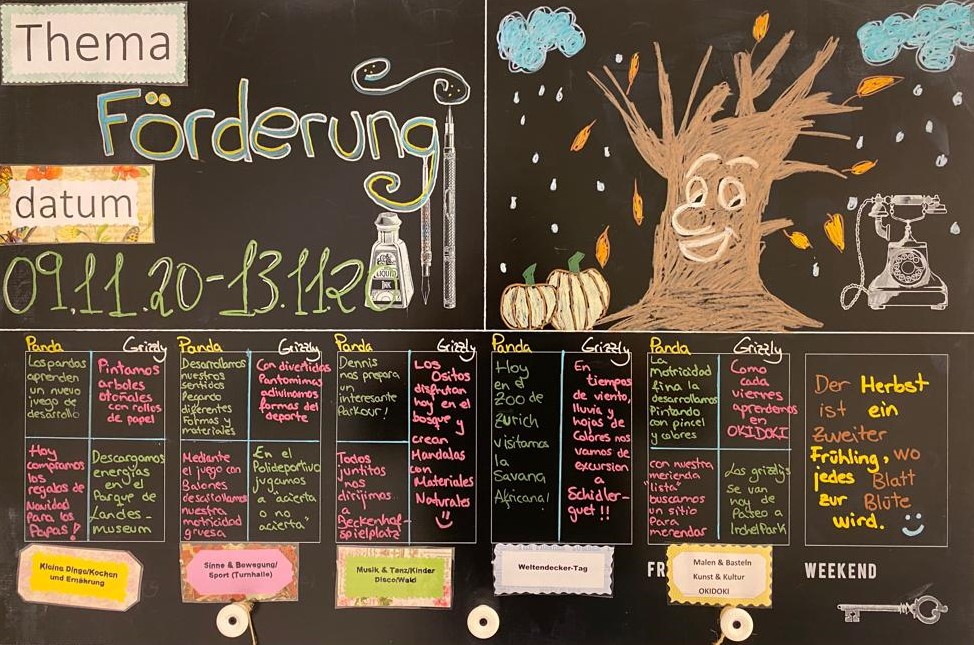 Thema
Förderung
datum
09.11.20-13.11.2
LIQUID
INK
Panda
Grizzly
Los pandas
aprenden
un nuevo
juego de
desarollo
Pintamos
arboles
otoñales
con rollos
de papel
Hoy
compramos
los
regalos de
Navidad
para los
Papas!
Descargamos
energías
en el
Parque de
Landes-
museum
Kleine Dinge/Kochen
und Ernährung
Panda
Grizzly
Desarrollamos
nuestros
sentidos
Pegando
diferentes
formas y
materiales
Con divertidas
Pantomimas
adivinamos
formas del
deporte
Mediante
el juego con
Balones
desarollamos
nuestra
motricidad
gruesa
En el
Polideportivo
jugamos
a "acierta
o no
acierta"
Sinne & Bewegung/
Sport (Turnhalle)
Panda
Grizzly
Dennis
nos prepara
un
interesante
Parkour!
Todos
juntitos
nos
dirijimos
a
Beckenhof-
spielplatz
Los
Ositos
disfrutan
hoy en el
bosque y
crean
Mandalas
con
Materiales
Naturales
!!
Musik & Tanz/Kinder
Disco/Wald
Panda
Grizzly
Hoy
en el
Zoo de
Zurich
visitamos
la
Savana
Africana!
En
tiempos
de viento,
lluvia y
hojas de
Colores nos
vamos de
excursion
a
Schidler-
guet!!
Weltendecker-Tag
Panda
Grizzly
La
Motricidad
fina la
desarollamos
Pintando
con pincel
y colores
Como
cada
viernes
aprendemos
en
OKIDOKI
con nuestra
merienda
"lista"
buscamos
un sitio
Para
merendar
Los grizlis
se van
hoy de
Paseo a
IrchelPark
FR
Malen & Basteln
Kunst & Kultur
OKIDOKI
Der Herbst
ist ein
Zweiter
Frühling, wo
jedes Blatt
zur Blüte
wird.
WEEKEND